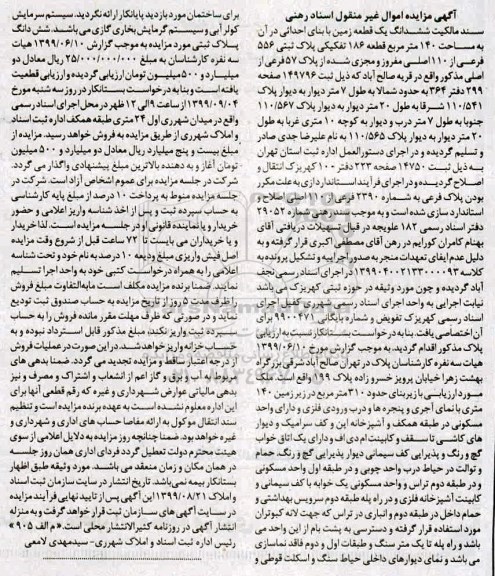 آگهی مزایده اموال غیر منقول اسناد رهنی
سند مالکیت ششدانگ یک قطعه زمین با بنای احداثی در آن
به مساحت ۱۴۰ متر مربع قطعه ۱۸۶ تفکیکی پلاک ثبتی ۵۵۶
فرعی از ۱۱۰ اصلی مفروز و مجزی شده از پلاک ۵۷ فرعی از
اصلی مذکور واقع در قریه صالح آباد که ذیل ثبت ۱۴۹۷۹۶ صفحه
۲۹۹ دفتر ۳۶۴ به حدود شمالا به طول ۷ متر دیوار به دیوار پلاک
۱۱۰/۵۴۱ شرقا به طول ۲۰ متر دیوار به دیوار پلاک ۱۱۰/۵۶۷
جنوبا به طول ۷ متر درب و دیوار به کوچه ۱۰ متری غربا به طول
۲۰ متر دیوار به دیوار پلاک ۱۱۰/۵۶۵ به نام علیرضا جدی صادر
و تسلیم گردیده و در اجرای دستورالعمل اداره ثبت استان تهران
به ذیل ثبت ۱۴۷۵۰ صفحه ۲۲۳ دفتر ۱۰۰ کهریزک انتقال و
اصلاح گردیده و در اجرای فرآیند استانداردسازی به علت مکرر
بودن پلاک فرعی به شماره ۲۳۹۰ فرعی از ۱۱۰ اصلی اصلاح و
استاندارد سازی شده است و به موجب سند رهنی شماره ۲۹۰۵۲
دفتر اسناد رسمی ۱۸۲ علویجه در قبال تسهیلات دریافتی آقای
بهنام کامران کورایم در رهن آقای مصطفی اکبری قرار گرفته و به
دلیل عدم ایفای تعهدات منجر به صدور اجراییه و تشکیل پرونده به
کلاسه ۱۳۹۹۰۴۰۰۲۱۳۳۰۰۰۰۹۳ در اجرای اسناد رسمی نجف
آباد گردیده و چون مورد وثیقه در حوزه ثبتی کهریزک می باشد
نیابت اجرایی به واحد اجرای اسناد رسمی شهرری که قبل اجرای
اسناد رسمی کهریزک تفویض و شماره بایگانی ۹۹۰۰۴۷۱ برای
آن اختصاصی یافت. بنابه درخواست بستانکار نسبت به ارزیابی
پلاک مذکور اقدام گردید. به موجب گزارش مورخ ۱۳۹۹/۰۶/۱۰
هیات سه نفره کارشناسان پلاک در تهران صالح آباد شرقی بزرگراه
بهشت زهرا خیابان پرویز خسرو زاده پلاک ۹۹ واقع است. ملک
مورد ارزیابی با زیربنای حدود ۳۱۰ مترمربع در زیر زمین ۱۴۰
متری با نمای آجری و پنجره ها و درب ورودی فلزی و دارای واحد
مسکونی در طبقه همکف و آشپزخانه این و کف سرامیک و دیوار
های کاشی تا سقف و کابینت ام دی اف و دارای یک اتاق خواب
گچ و رنگ و پذیرایی کف سیمانی دیوار پذیرایی گچ و رنگ، حمام
و توالت در حیاط درب واحد چوبی و در طبقه اول واحد مسکونی
و در طبقه دوم تراس و واحد مسکونی یک خوابه با کف سیمانی و
کابینت آشپزخانه فلزی و در راه پله طبقه دوم سرویس بهداشتی و
حمام داخل در طبقه دوم و انباری در تراس که جهت لانه کبوتران
مورد استفاده قرار گرفته و دسترسی به پشت بام از این واحد می
باشد و راه پله تا یک متر سنگ و طبقات اول و دوم فاقد نماسازی
می باشد و نمای دیوارهای داخلی حیاط سنگ و اسکلت قوطی و
برای ساختمان مورد بازدید پایانکار ارائه نکردید. سیستم سرمایش
کولر آبی و سیستم گرمایش بخاری گازی می باشد. شش دانگ
پلاک ثبتی مورد مزایده به موجب گزارش ۱۳۹۹/۰۶/۱۰ هیات
سه نفره کارشناسان به مبلغ ۲۵/۰۰۰/۰۰۰/۰۰۰ ریال معادل دو
میلیارد و ۵۰۰ میلیون تومان ارزیابی گردیده و ارزیابی قطعیت
یافته است و بنابه درخواست بستانکار در روز سه شنبه مورخ
۱۳۹۹/۰۹/۰۴ از ساعت ۹ الی ۱۲ ظهر در محل اجرای اسناد رسمی
واقع در میدان شهرری اول ۲۴ متری طبقه همکف اداره ثبت اسناد
و املاک شهرری از طریق مزایده به فروش خواهد رسید. مزایده از
مبلغ بیست و پنج میلیارد ریال معادل دو میلیارد و ۵۰۰ میلیون
تومان آغاز و به دهنده بالاترین مبلغ پیشنهادی واگذار می گردد.
شرکت در جلسه مزایده برای عموم اشخاص آزاد است. شرکت در
جلسه مزایده منوط به پرداخت ۱۰ درصد از مبلغ پایه کارشناسی
به حساب سپرده ثبت و پس از اخذ شناسه واریز اعلامی و حضور
خریدار و یا نماینده قانونی او در جلسه مزایده است. لذا خریدار
و یا خریداران می بایست تا ۷۲ ساعت قبل از شروع وقت مزایده
اصل فیش واریزی مبلغ ودیعه ۱۰ درصد به نام خود و تحت شناسه
اعلامی را به همراه درخواست کتبی خود به واحد اجرا تسلیم
نمایند. ضمنا برنده مزایده مکلف است مابه التفاوت مبلغ فروش
را ظرف مدت ۵ روز از تاریخ مزایده به حساب صندوق ثبت تودیع
نماید و در صورتی که ظرف مهلت مقرر مانده فروش را به حساب
سپرده ثبت واریز نکند، مبلغ مذکور قابل استرداد نبوده و به
حساب خزانه واریز خواهد شد. در این صورت عملیات فروش
از درجه اعتبار ساقط و مزایده تجدید می گردد. ضمنا بدهی های
مربوط به آب و برق و گاز اعم از انشعاب و اشتراک و مصرف و نیز
بدهی مالیاتی عوارض شهرداری و غیره که رقم قطعی آنها برای
این اداره معلوم نشده است به عهده برنده مزایده است و تنظیم
سند انتقال موکول به ارائه مفاصا حساب های اداری و شهرداری و
غیره خواهد بود. ضمنا چنانچه روز مزایده به دلایل اعلامی از سوی
هیئت محترم دولت تعطیل گردد فردای اداری همان روز جلسه
در همان مکان و زمان منعقد می باشد. مورد وثیقه طبق اظهار
بستانکار بیمه نمی باشد. تاریخ انتشار در سایت سازمان ثبت اسناد
و املاک ۱۳۹۹/۰۸/۲۱ این آگهی پس از تایید نهایی فرآیند مزایده
در سایت آگهی های سازمان ثبت قرار خواهد گرفت و به منزله
انتشار آگهی در روزنامه کثیرالانتشار محلی است. «م الف ۹۰۵»
رئیس اداره ثبت اسناد و املاک شهرری-سیدمهدی لامعی